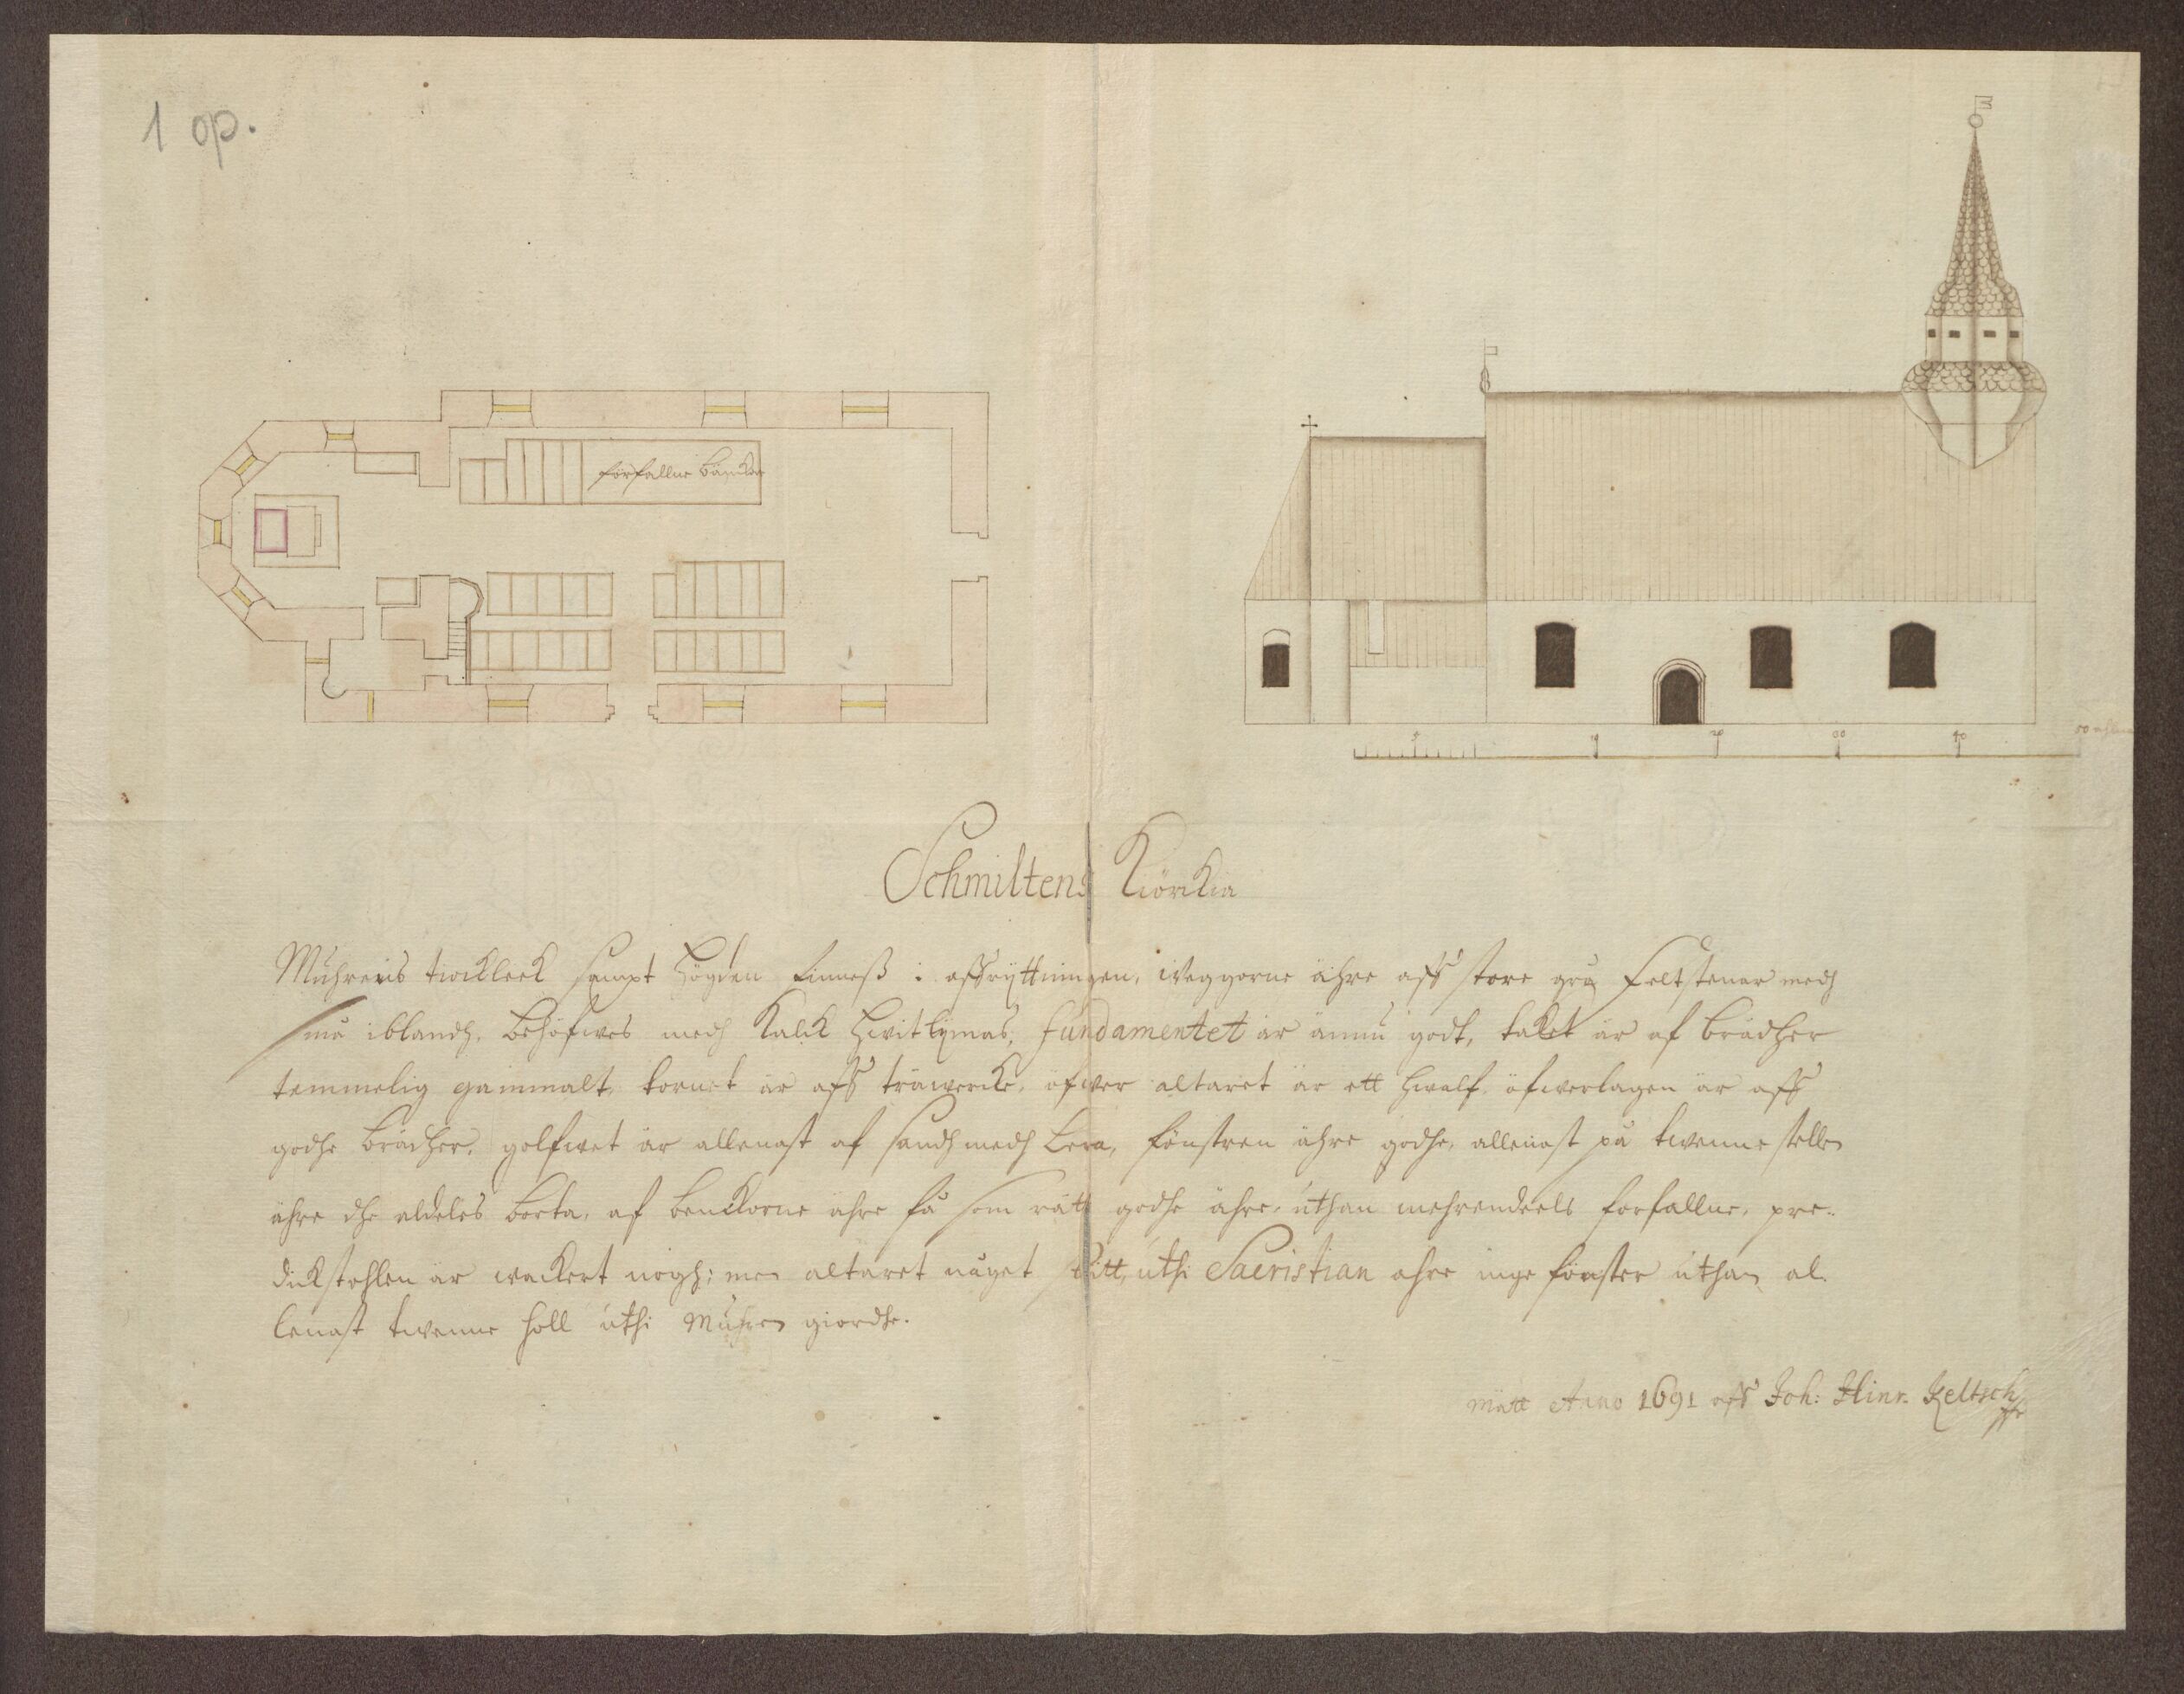 1 op.
förfallne bäncker
5 10 20 30 40 50 ahlnar
Schmiltens Kiörckia
Muhrens tiockleek sampt högden finneß i affryttningen, weggorne ähre aff store grå Feltstenar medh
små iblandh, behöfwes medh Kalck hwitlijmas, fundamentet är ännu godt, taket är af brädher
temmelig gammalt, tornet är aff träwercke, öfwer altaret är ett hwalf, öfwerlagen är aff
godhe brädher, golfwet är allenast af sandh medh Lera, fönstren ähre godhe, allenast på twenne stellen
ähre dhe aldeles borta, af benckorne ähre få som rätt godhe ähre, uthan mehrendeels forfallne, pre-
dickstohlen är wackert nogh; men altaret något slitt, uthi Sacristian ahre inge fönster uthan al-
lenast twenne holl uthi Muhren giordhe.
Mätt Anno 1691 aff Joh: Hinr. Keltsch